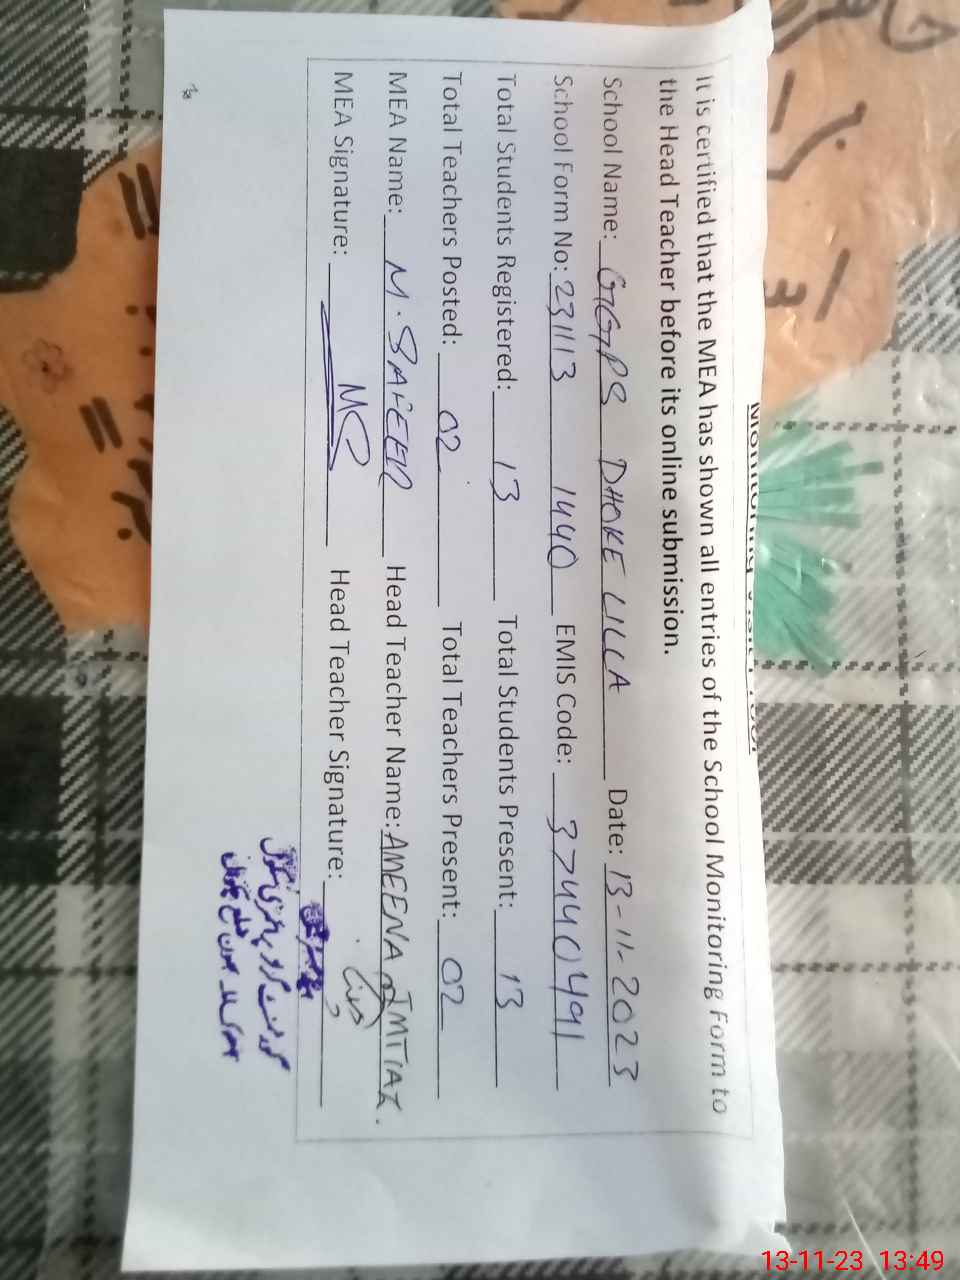 It is certified that the MEA has shown all entries of the School Monitoring Form to
the Head Teacher before its online submission.
School Name: GGPS DHOKE LILLA Date: 13-11-2023
School Form No: 231113 1440 EMIS Code: 37440491
Total Students Registered: 13 Total Students Present: 13
Total Teachers Posted: 02 Total Teachers Present: 02
MEA Name: M. SAFEER Head Teacher Name: AMEENA IMTIAZ.
MEA Signature: MS Head Teacher Signature:
13-11-23 13:49